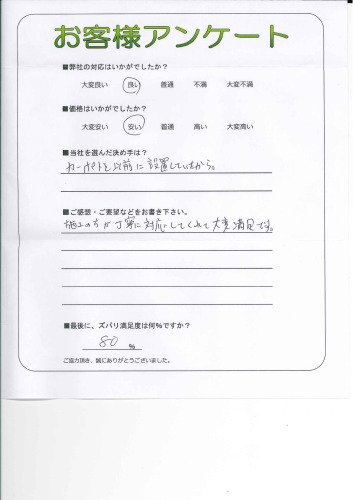 お客様アンケート
■弊社の対応はいかがでしたか？
大変良い 良い 普通 不満 大変不満
■価格はいかがでしたか？
大変安い 安い 普通 高い 大変高い
■当社を選んだ決め手は？
カーポートを以前に設置していたから。
■ご感想・ご要望などをお書き下さい。
施工の方が丁寧に対応してくれて大変満足です。
■最後に、ズバリ満足度は何%ですか？
80 %
ご協力頂き、誠にありがとうございました。